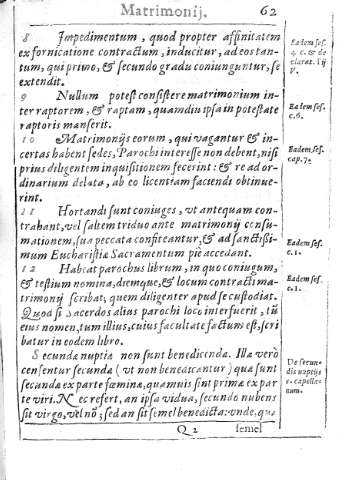 Matrimonij. 62
8 Impedimentum, quod propter affinitatem
ex fornicatione contractum, inducitur, ad eos tan-
tum, qui primo, & secundo gradu coniunguntur, se
extendit.
Eadem ses.
q. c. & de
clarat. Pij
V.
9 Nullum potest consistere matrimonium in-
ter raptorem, & raptam, quamdiu ipsa in potestate
raptoris manserit.
Eadem ses.
c.6.
10 Matrimonijs eorum, qui vagantur & in-
certas habent sedes, Parochi interesse non debent, nisi
prius diligentem inquisitionem fecerint: & re ad or-
dinarium delata, ab eo licentiam faciendi obtinue-
rint.
Eadem ses.
cap.7.
11 Hortandi sunt coniuges, vt antequam con-
trahant, vel saltem triduo ante matrimonij consu-
mationem, sua peccata confiteantur, & ad sanctissi-
mum Eucharistiæ Sacramentum piè accedant.
Eadem ses.
c.1.
12 Habeat parochus librum, in quo coniugum,
& testium nomina, diemque, & locum contracti ma-
trimonij scribat, quem diligenter apud se custodiat.
Quod si Sacerdos alius parochi loco interfuerit, tũ
eius nomen, tum illius, cuius facultate factum est, scri
batur in eodem libro.
Eadem ses.
c.1.
Secundæ nuptiæ non sunt benedicendæ. Illæ verò
censentur secundæ (vt non benedicantur) quæ sunt
secundæ ex parte fœminæ, quamuis sint primæ ex par
te viri. Nec refert, an ipsa vidua, secundo nubens
sit virgo, vel nõ; sed an sit semel benedicta: vnde, quæ
De secun-
dis nuptijs
c. capella-
num.
Q 2 semel